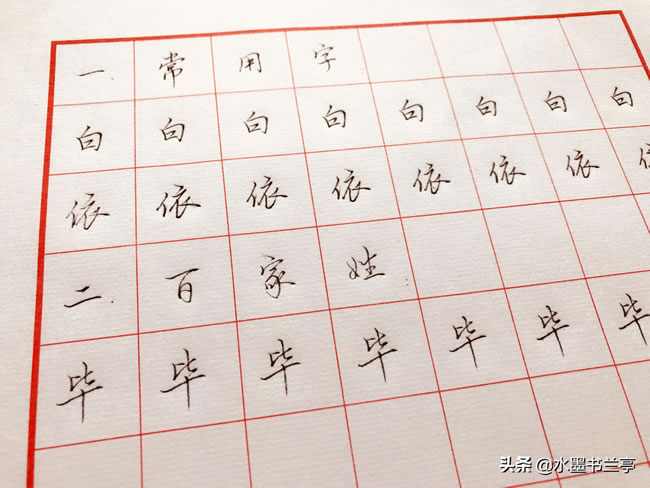 一.常用字
白白白白白白白白
依依依依依依依依
二.百家姓
毕毕毕毕毕毕毕
头条 @水墨书兰亭